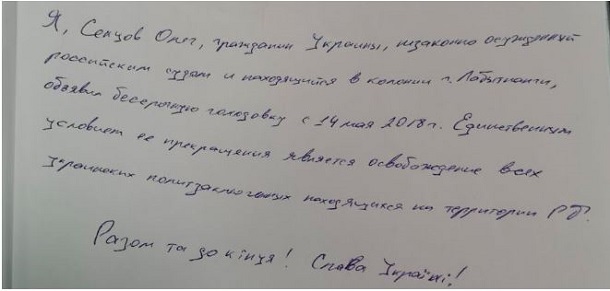 Я, Сенцов Олег, гражданин Украины, незаконно осужденный
российским судом и находящийся в колонии г. Лабытнанги,
объявил бессрочную голодовку с 14 мая 2018 г. Единственным
условием ее прекращения является освобождение всех
украинских политзаключенных находящихся на территории РФ.
Разом та до кінця! Слава Україні!